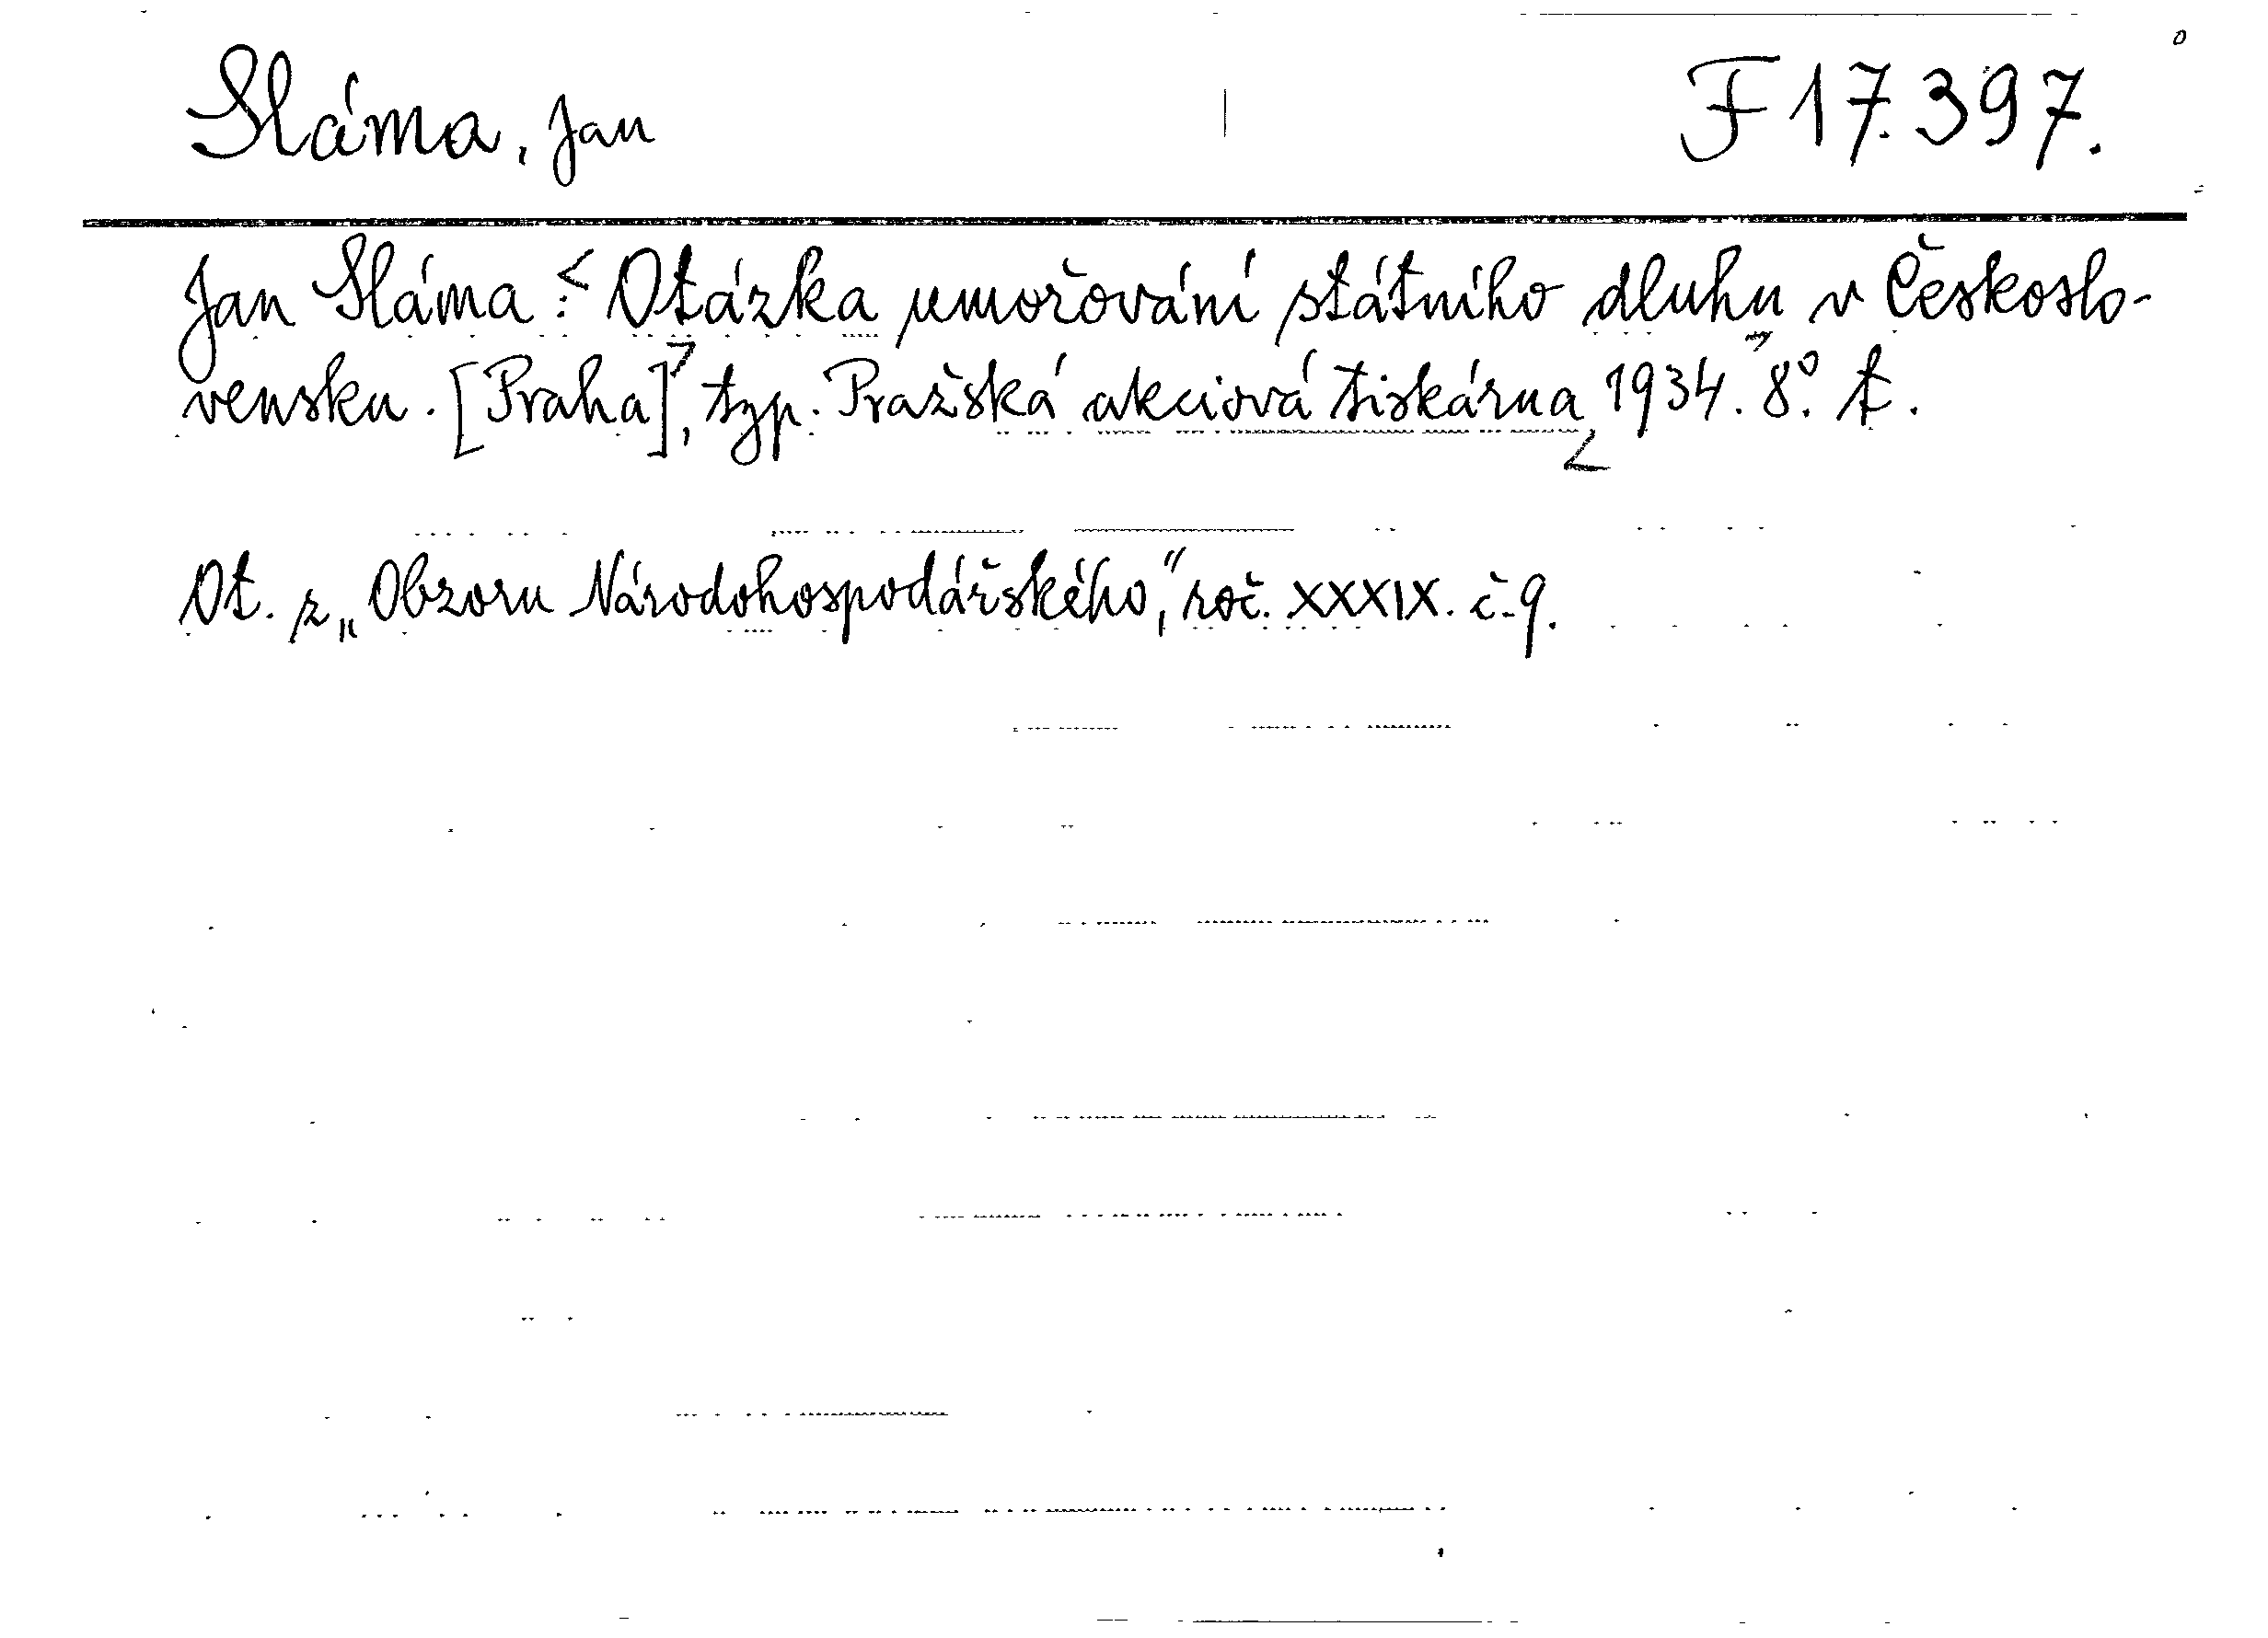 Sláma, Jan F 17.397.
Jan Sláma: Otázka umořování státního dluhu v Českoslo-
vensku. [Praha], typ. Pražská akciová tiskárna 1934. 8°. t.
Ot. z „Obzoru Národohospodářského," roč. XXXIX. č. 9.